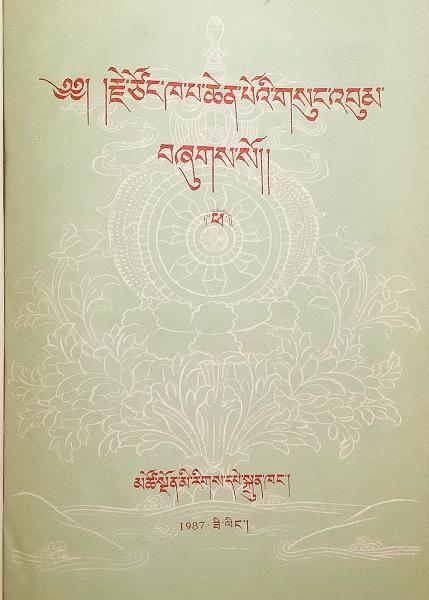 ༄༅། །རྗེ་ཙོང་ཁ་པ་ཆེན་པོའི་གསུང་འབུམ་
བཞུགས་སོ།།
༼ཕ༽
མཚོ་སྔོན་མི་རིགས་དཔེ་སྐྲུན་ཁང་།
1987·ཟི་ལིང་།